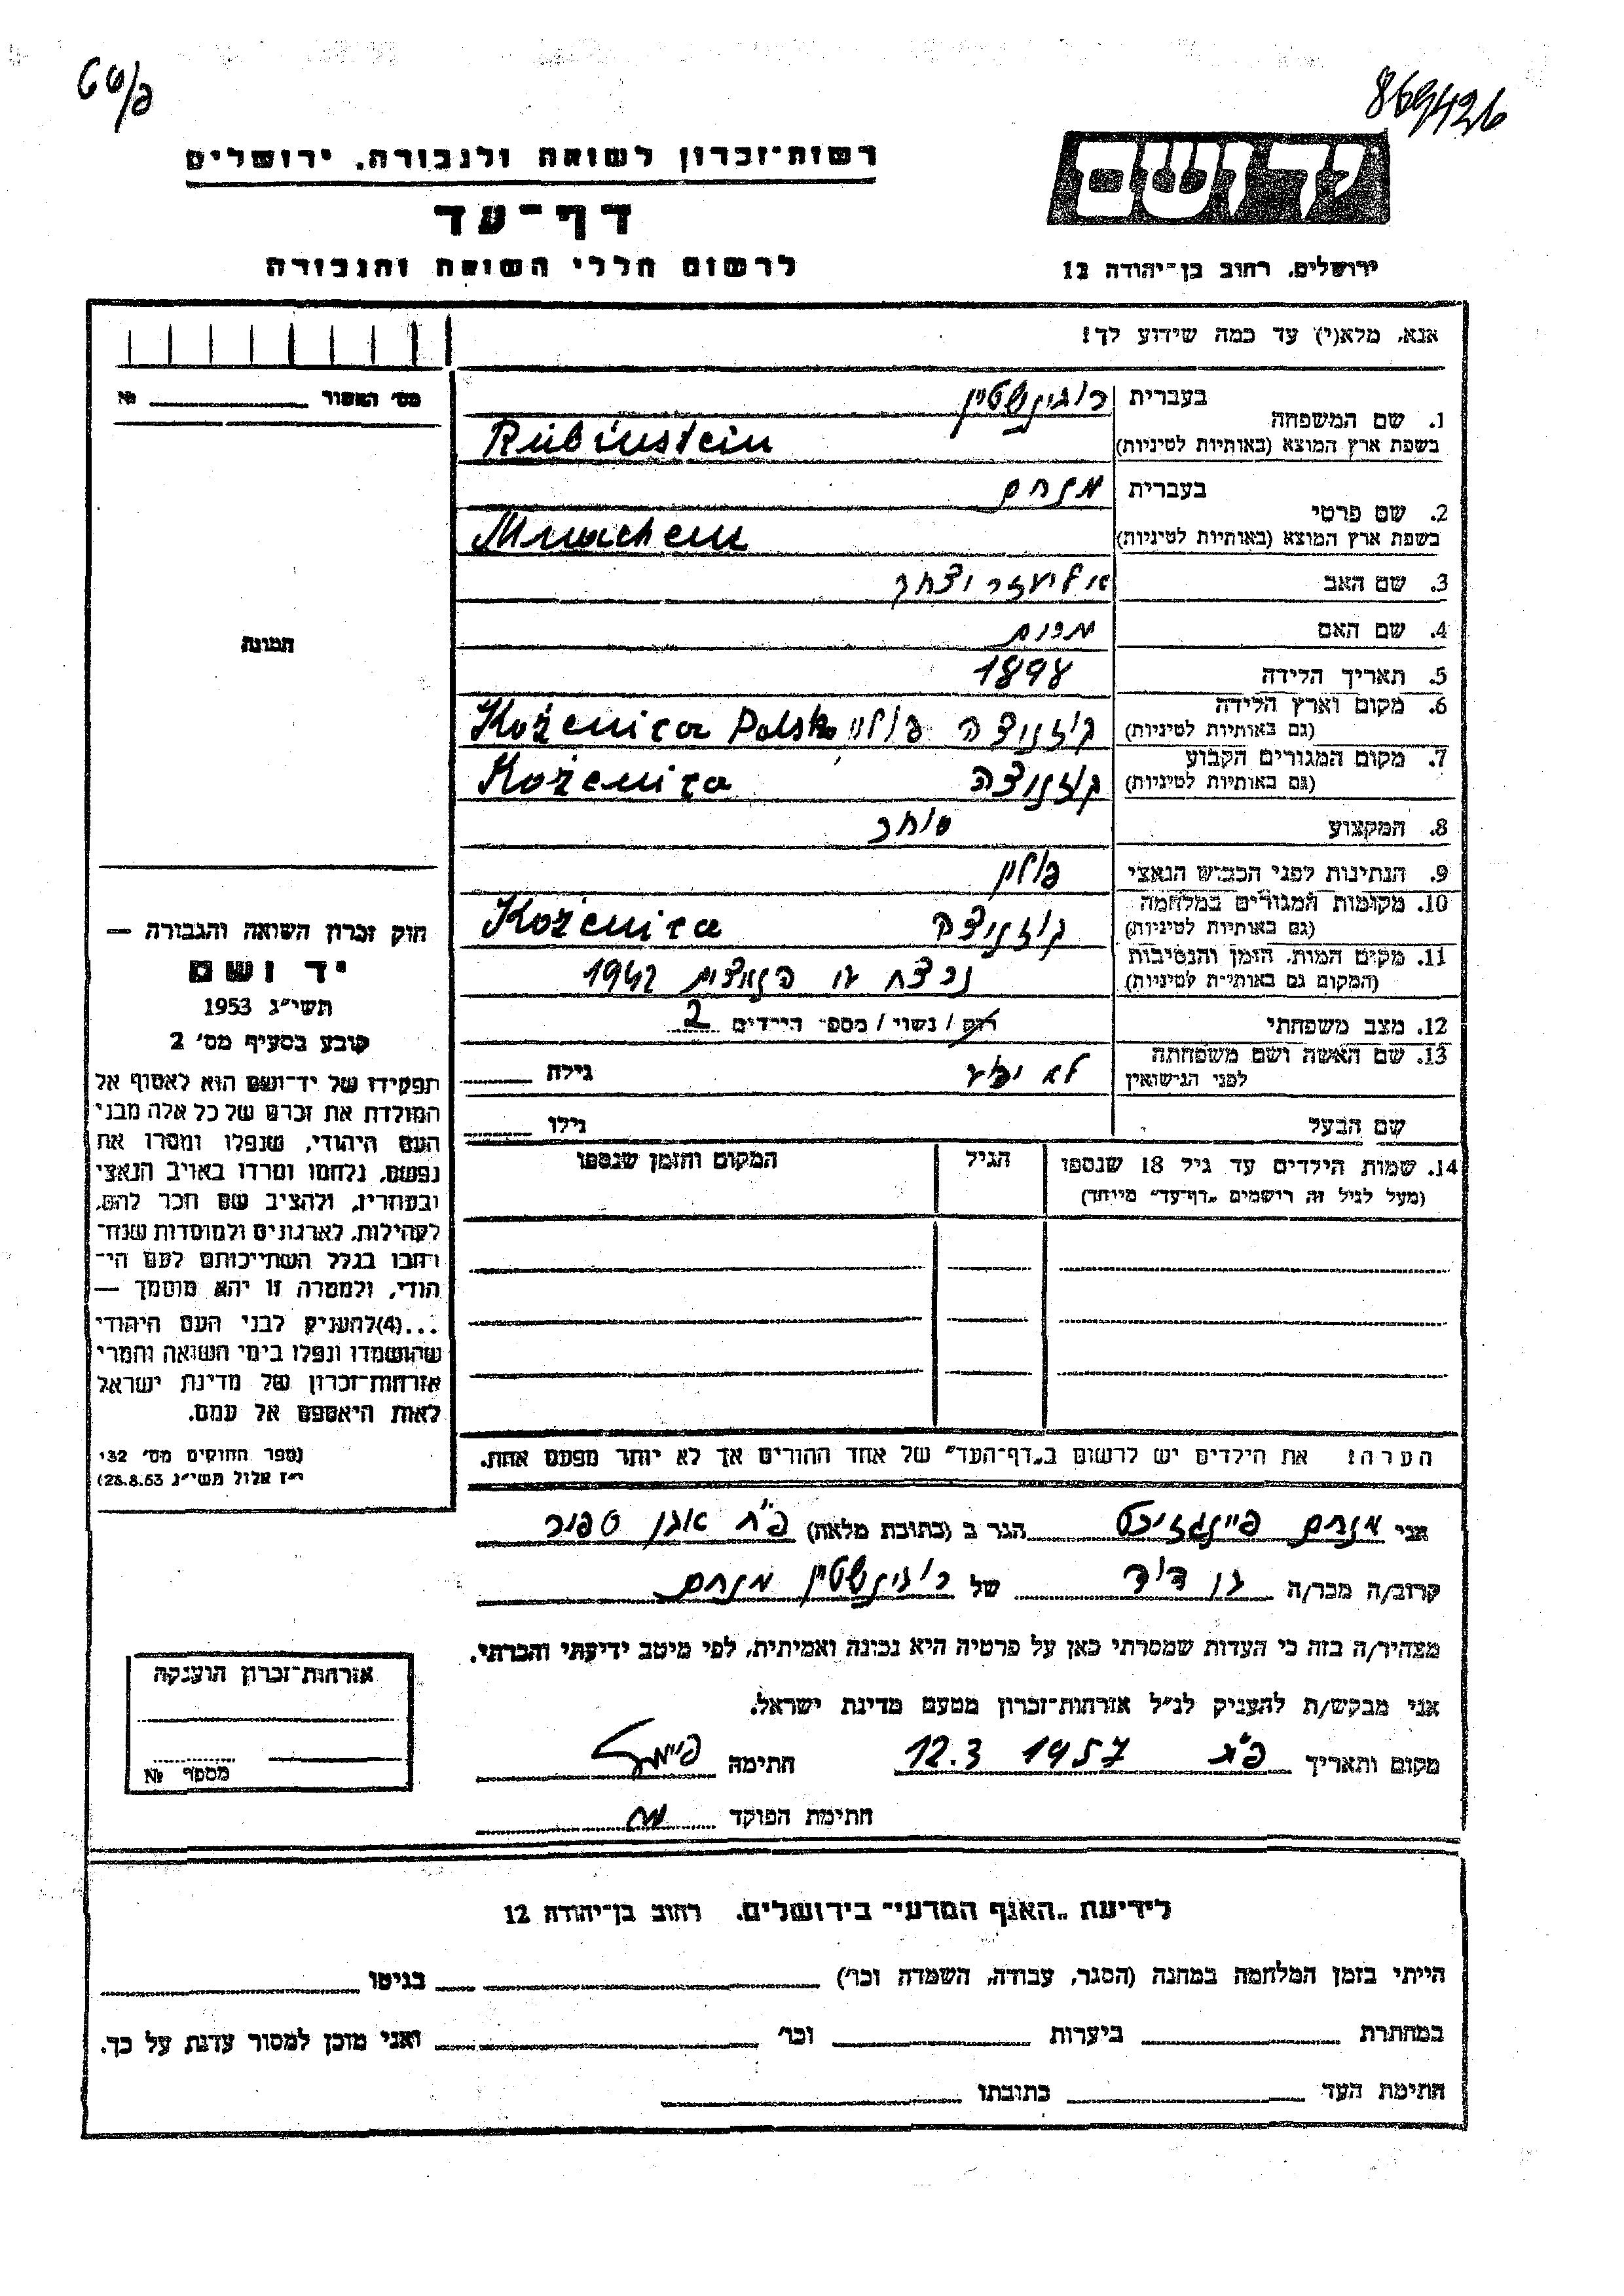 869426
רשות-זכרון לשואה ולגבורה. ירושלים
דף-עד
לרשום חללי השואה והגבורה
יד ושם
ירושלים, רחוב בן-יהודה 12
אנא, מלא(י) עד כמה שידוע לך!
מס' האשור № ____
1. שם המשפחה בעברית רובינשטיין
בשפת ארץ המוצא (באותיות לטיניות) Rubinstein
2. שם פרטי בעברית מנחם
בשפת ארץ המוצא (באותיות לטיניות) Mnachem
3. שם האב אליעזר יצחק
4. שם האם
5. תאריך הלידה 1898
6. מקום וארץ הלידה קוזניצה פולין Koženica Polsko
(גם באותיות לטיניות)
7. מקום המגורים הקבוע קוזניצה Koženica
(גם באותיות לטיניות)
8. המקצוע סוחר
9. הנתינות לפני הכבוש הנאצי פולין
10. מקומות המגורים במלחמה קוזניצה Koženica
(גם באותיות לטיניות)
11. מקום המות, הזמן והנסיבות נרצח ע"י הנאצים 1942
(המקום גם באותיות לטיניות)
12. מצב משפחתי רווק / נשוי / מספר הילדים 2
13. שם האשה ושם משפחתה לא ידוע גילה
לפני הנישואין
שם הבעל גילו
14. שמות הילדים עד גיל 18 שנספו הגיל המקום והזמן שנספו
(מעל לגיל זה רישמים "דף-עד" מיוחד)
הערה: את הילדים יש לרשום ב"דף-העד" של אחד ההורים אך לא יותר מפעם אחת.
תמונה
חוק זכרון השואה והגבורה —
יד ושם
תשי"ג 1953
קובע בסעיף מס' 2
תפקידו של יד-ושם הוא לאסוף אל
המולדת את זכרם של כל אלה מבני
העם היהודי, שנפלו ומסרו את
נפשם, נלחמו ומרדו באויב הנאצי
ובעוזריו, ולהציב שם וזכר להם,
לקהילות, לארגונים ולמוסדות שנח-
רבו בגלל השתייכותם לעם הי-
הודי, ולמטרה זו יהא מוסמך —
...(4) להעניק לבני העם היהודי
שהושמדו ונפלו בימי השואה והמרי
אזרחות-זכרון של מדינת ישראל
לאות היאספם אל עמם.
(ספר החוקים מס' 132
י"ז אלול תשי"ג 28.8.53)
אני מנחם הגר ב (כתובת מלאה) פ"ת
קרוב/ה מכר/ה בן דוד של רובינשטיין מנחם
מצהיר/ה בזה כי העדות שמסרתי כאן על פרטיה היא נכונה ואמיתית, לפי מיטב ידיעתי והכרתי.
אני מבקש/ת להעניק לנ"ל אזרחות-זכרון מטעם מדינת ישראל.
מקום ותאריך 12.3 1957 חתימה
חתימת הפוקד
אזרחות-זכרון הוענקה
מספר №
לידיעת "האגף המדעי" בירושלים. רחוב בן-יהודה 12
הייתי בזמן המלחמה במחנה (הסגר, עבודה, השמדה וכו') בגיטו
במחתרת ביערות וכו' ואני מוכן למסור עדות על כך.
חתימת העד כתובתו